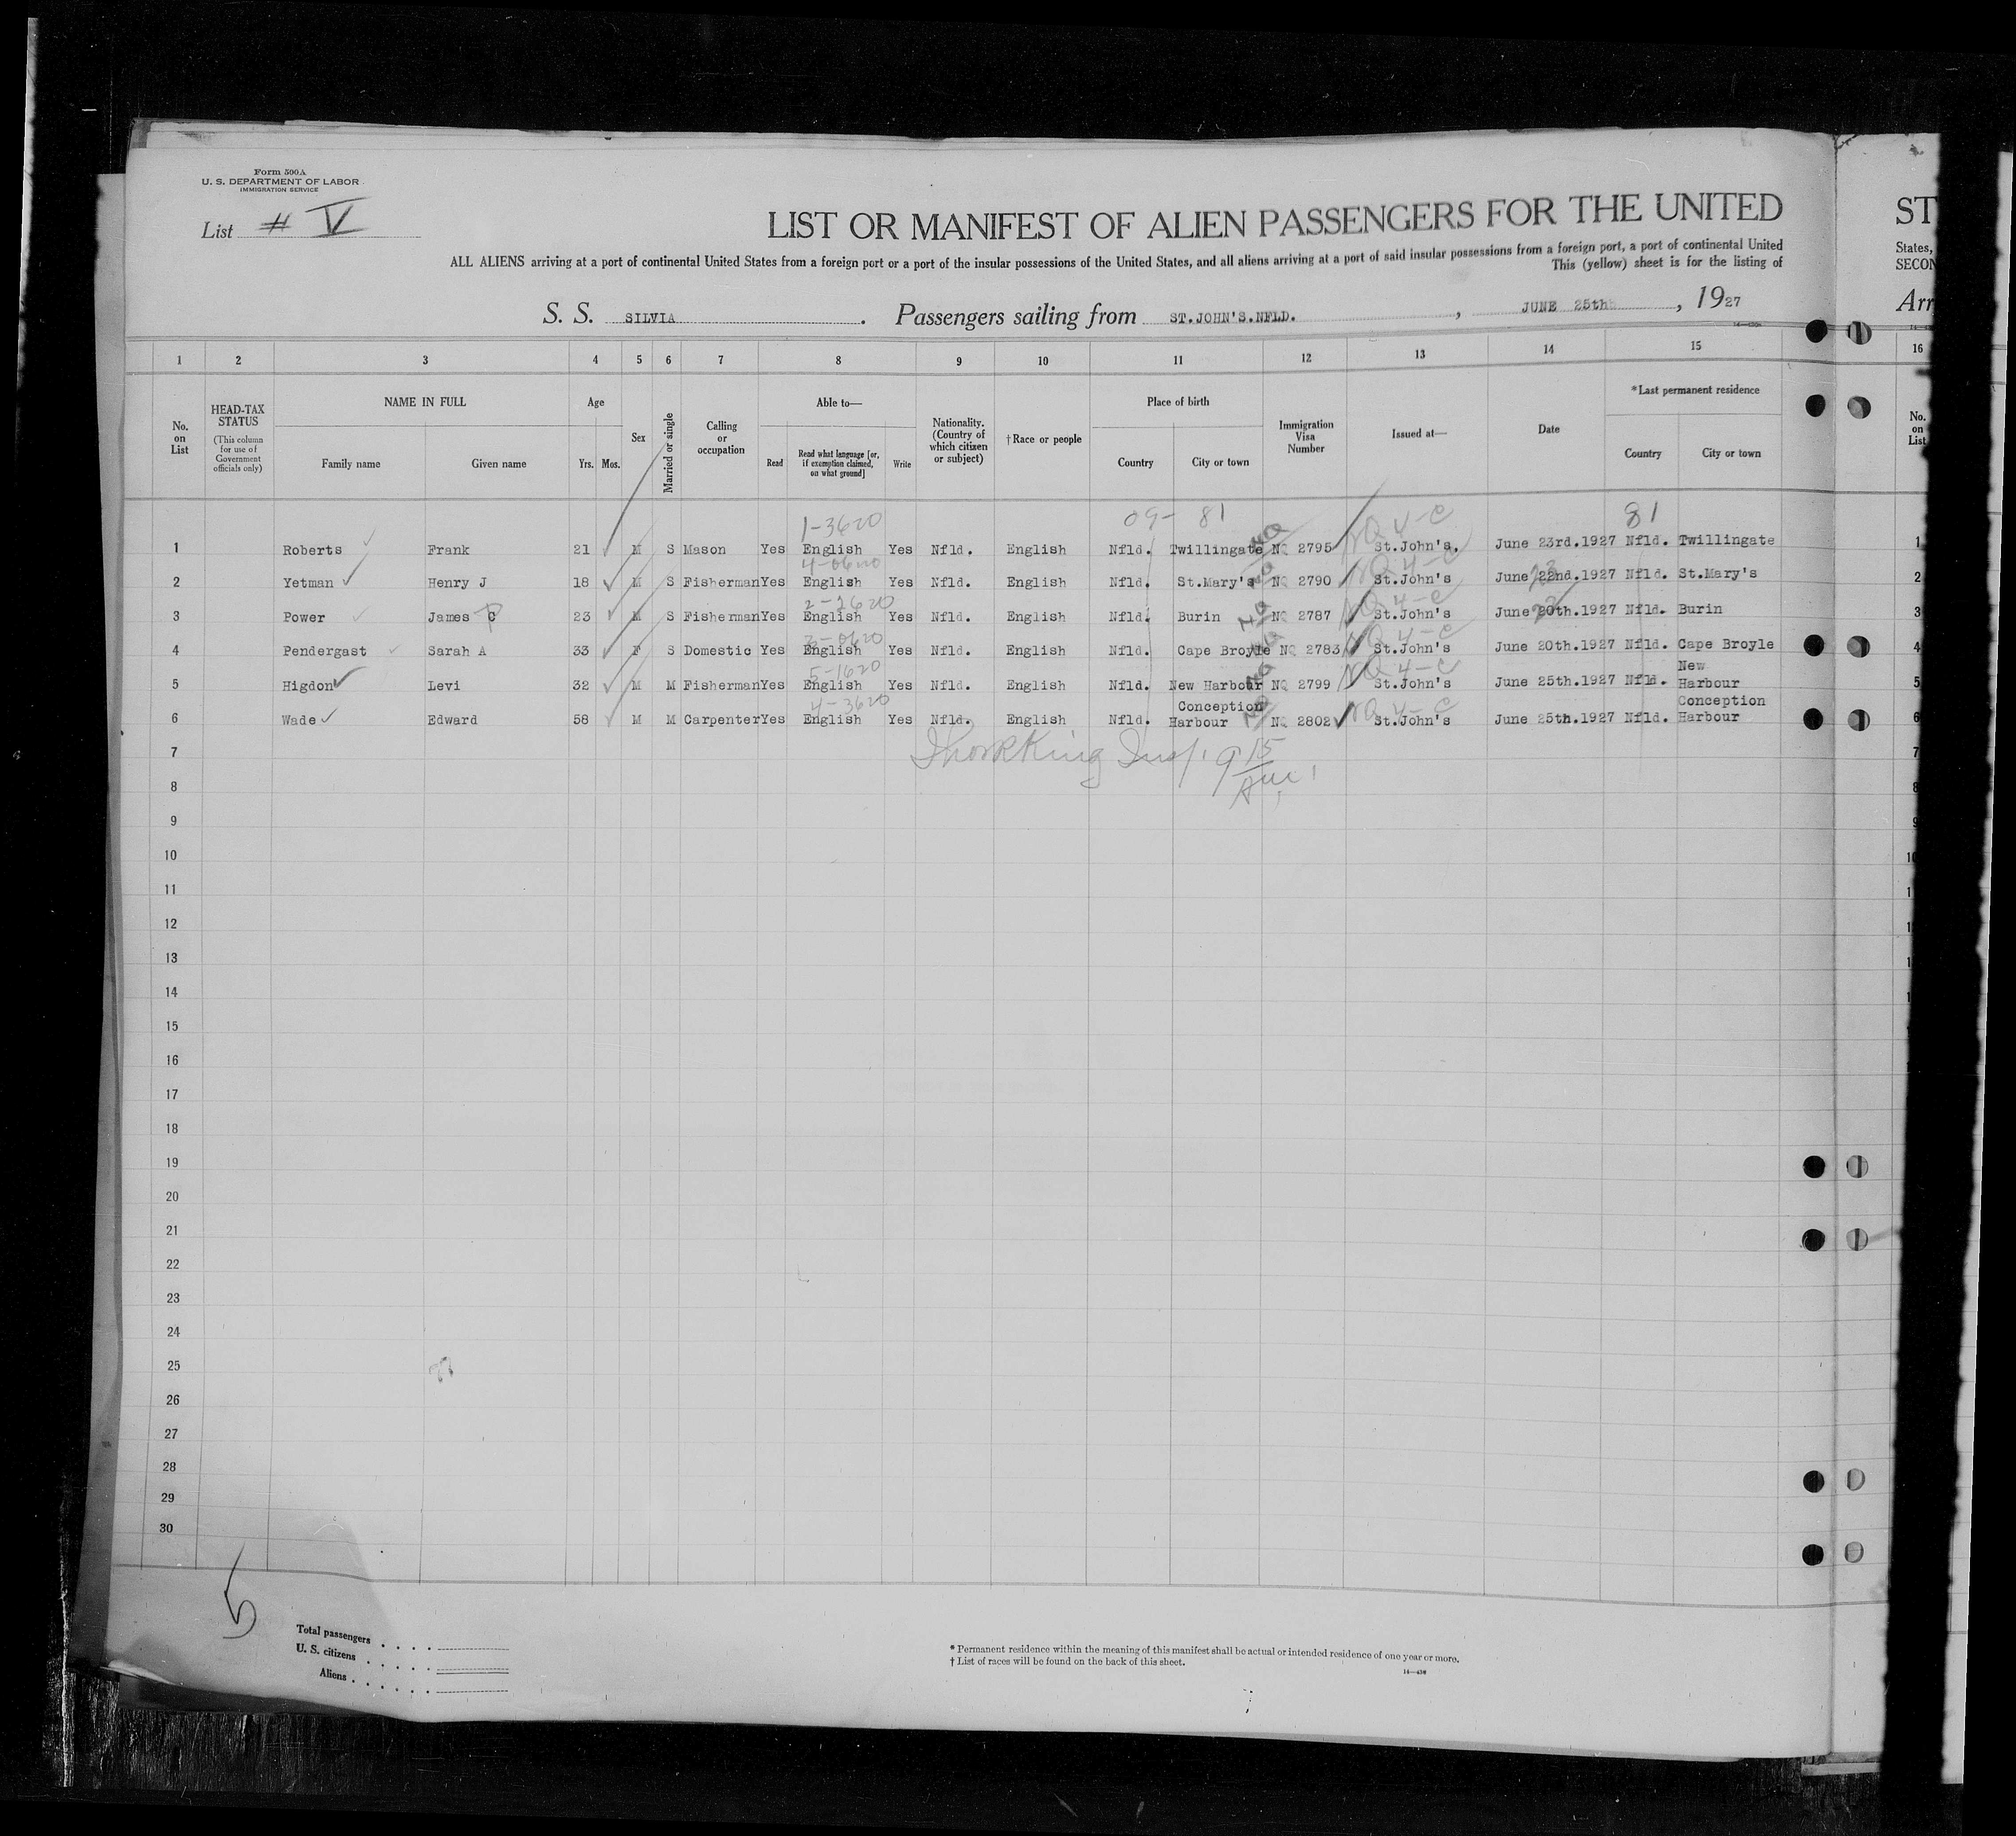 Form 500A
U. S. DEPARTMENT OF LABOR
IMMIGRATION SERVICE
List # V
LIST OR MANIFEST OF ALIEN PASSENGERS FOR THE UNITED
ST
ALL ALIENS arriving at a port of continental United States from a foreign port or a port of the insular possessions of the United States, and all aliens arriving at a port of said insular possessions from a foreign port, a port of continental United
States,
This (yellow) sheet is for the listing of
SECON
S. S. SILVIA . Passengers sailing from ST.JOHN'S.NFLD. , JUNE 25th , 1927
Arr
1 2 3 4 5 6 7 8 9 10 11 12 13 14 15 16
No. on List
HEAD-TAX STATUS
(This column for use of Government officials only)
NAME IN FULL
Family name Given name
Age
Yrs. Mos.
Sex
Married or single
Calling or occupation
Able to—
Read
Read what language [or, if exemption claimed, on what ground]
Write
Nationality. (Country of which citizen or subject)
†Race or people
Place of birth
Country City or town
Immigration Visa Number
Issued at—
Date
*Last permanent residence
Country City or town
No. on List
1-3620 09- 81 NQ 4-C 81
1 Roberts Frank 21 M S Mason Yes English Yes Nfld. English Nfld. Twillingate NQ 2795 St.John's. June 23rd.1927 Nfld. Twillingate 1
4-0620 NQ 4-C
2 Yetman Henry J 18 M S Fisherman Yes English Yes Nfld. English Nfld. St.Mary's NQ 2790 St.John's June 22nd.1927 Nfld. St.Mary's 2
2-2620 NQ 4-C
3 Power James C P 23 M S Fisherman Yes English Yes Nfld. English Nfld. Burin NQ 2787 St.John's June 20th.1927 Nfld. Burin 3
NQ 4-C
4 Pendergast Sarah A 33 F S Domestic Yes English Yes Nfld. English Nfld. Cape Broyle NQ 2783 St.John's June 20th.1927 Nfld. Cape Broyle 4
5-1620 NQ 4-C
5 Higdon Levi 32 M M Fisherman Yes English Yes Nfld. English Nfld. New Harbour NQ 2799 St.John's June 25th.1927 Nfld. New Harbour 5
4-3620 NQ 4-C
6 Wade Edward 58 M M Carpenter Yes English Yes Nfld. English Nfld. Conception Harbour NQ 2802 St.John's June 25th.1927 Nfld. Conception Harbour 6
King Insp. 9 15 Am.
7
8
9
10
11
12
13
14
15
16
17
18
19
20
21
22
23
24
25
26
27
28
29
30
5
Total passengers
U. S. citizens
Aliens
* Permanent residence within the meaning of this manifest shall be actual or intended residence of one year or more.
† List of races will be found on the back of this sheet.